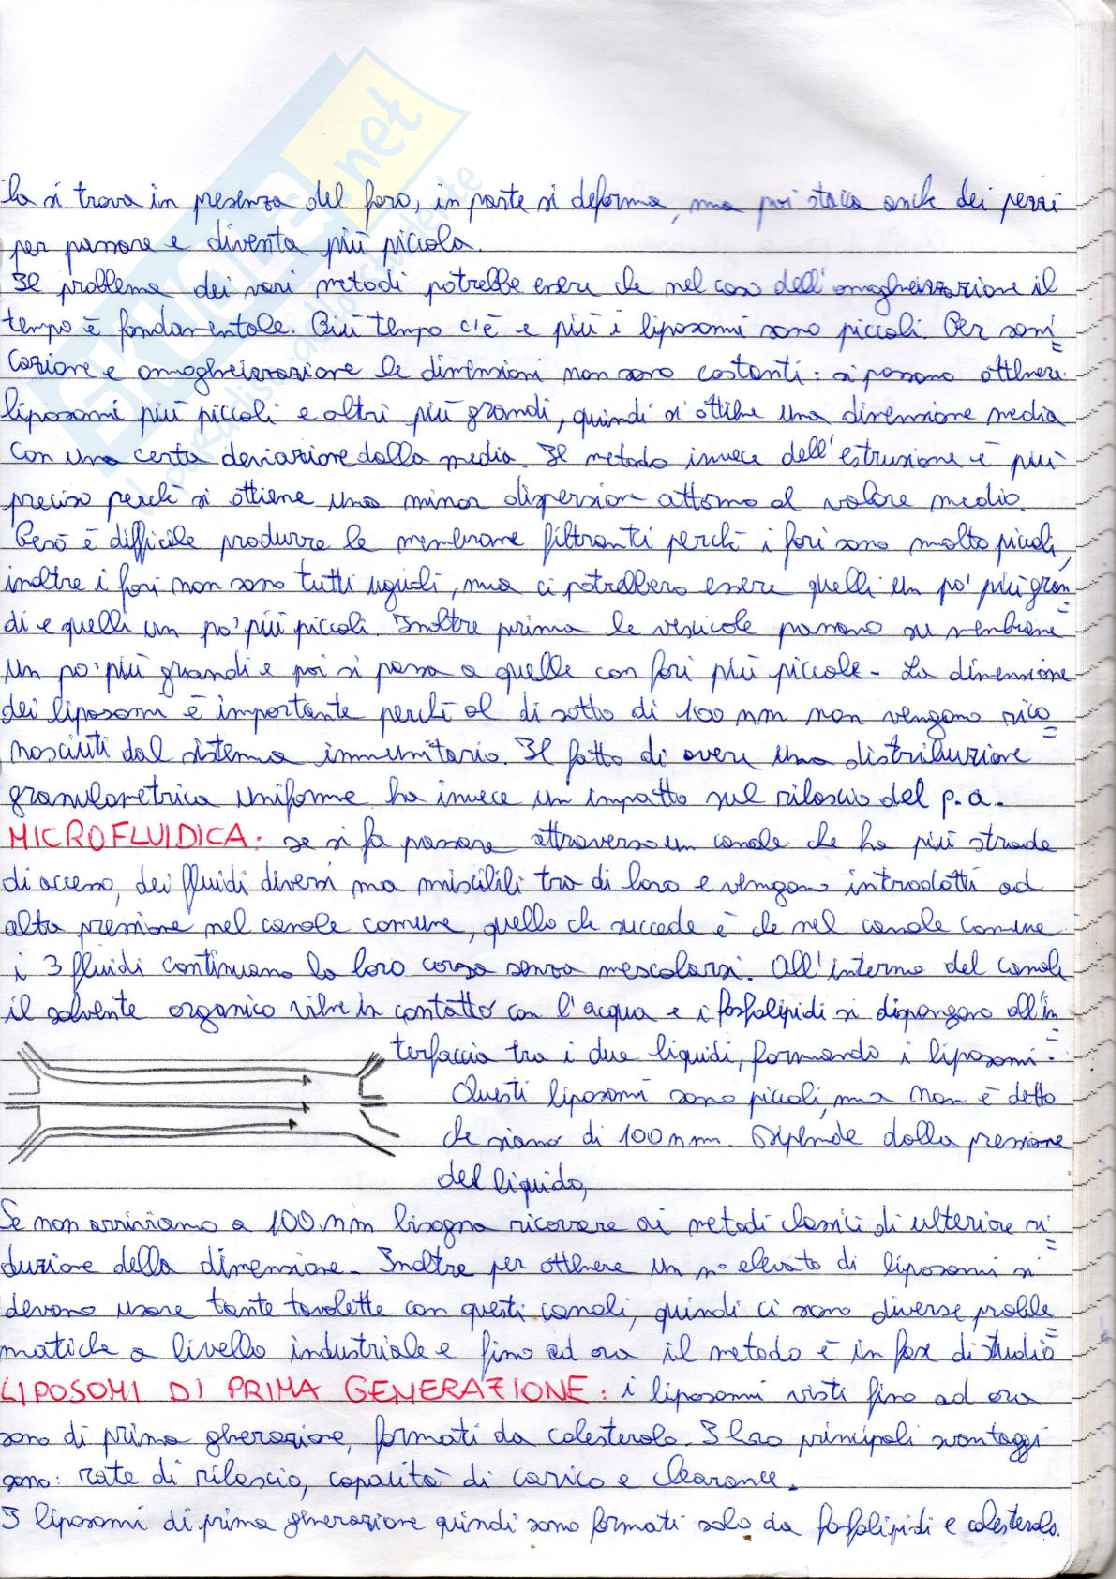 la si trova in presenza del foro, in parte si deforma, ma poi stacca anche dei pezzi
per passare e diventa più piccola.
Il problema dei vari metodi potrebbe essere che nel caso dell'omogheizzazione il
tempo è fondamentale. Più tempo c'è e più i liposomi sono piccoli. Per soni
cazione e omogheizzazione le dimensioni non sono costanti: si possono ottenere
liposomi più piccoli e altri più grandi, quindi si ottiene una dimensione media
con una certa deviazione dalla media. Il metodo invece dell'estrusione è più
preciso perchè si ottiene una minor dispersion attorno al valore medio.
Però è difficile produrre le membrane filtranti perchè i fori sono molto piccoli,
inoltre i fori non sono tutti uguali, ma ci potrebbero essere quelli un po' più gran
di e quelli un po' più piccoli. Inoltre prima le vescicole passano su membrane
un po' più grandi e poi si passa a quelle con fori più piccole. La dimensione
dei liposomi è importante perchè al di sotto di 100 nm non vengono rico
nosciuti dal sistema immunitario. Il fatto di avere una distribuzione
granulometrica uniforme ha invece un impatto sul rilascio del p.a.
MICROFLUIDICA: se si fa passare attraverso un canale che ha più strade
di accesso, dei fluidi diversi ma miscibili tra di loro e vengono introdotti ad
alta pressione nel canale comune, quello che succede è che nel canale comune
i 3 fluidi continuano la loro corsa senza mescolarsi. All'interno del canale
il solvente organico viene in contatto con l'acqua e i fosfolipidi si dispongono all'in
terfaccia tra i due liquidi, formando i liposomi.
Questi liposomi sono piccoli, ma non è detto
che siano di 100 nm. Dipende dalla pressione
del liquido,
Se non arriviamo a 100 nm bisogna ricorrere ai metodi classici di ulteriore ri
duzione della dimensione. Inoltre per ottenere un n° elevato di liposomi si
devono usare tante tavolette con questi canali, quindi ci sono diverse proble
matiche a livello industriale e fino ad ora il metodo è in fase di studio
LIPOSOMI DI PRIMA GENERAZIONE: i liposomi visti fino ad ora
sono di prima gherazione, formati da colesterolo. I loro principali svantaggi
sono: rate di rilascio, capacità di carico e clearance.
I liposomi di prima generazione quindi sono formati solo da fosfolipidi e colesterolo.